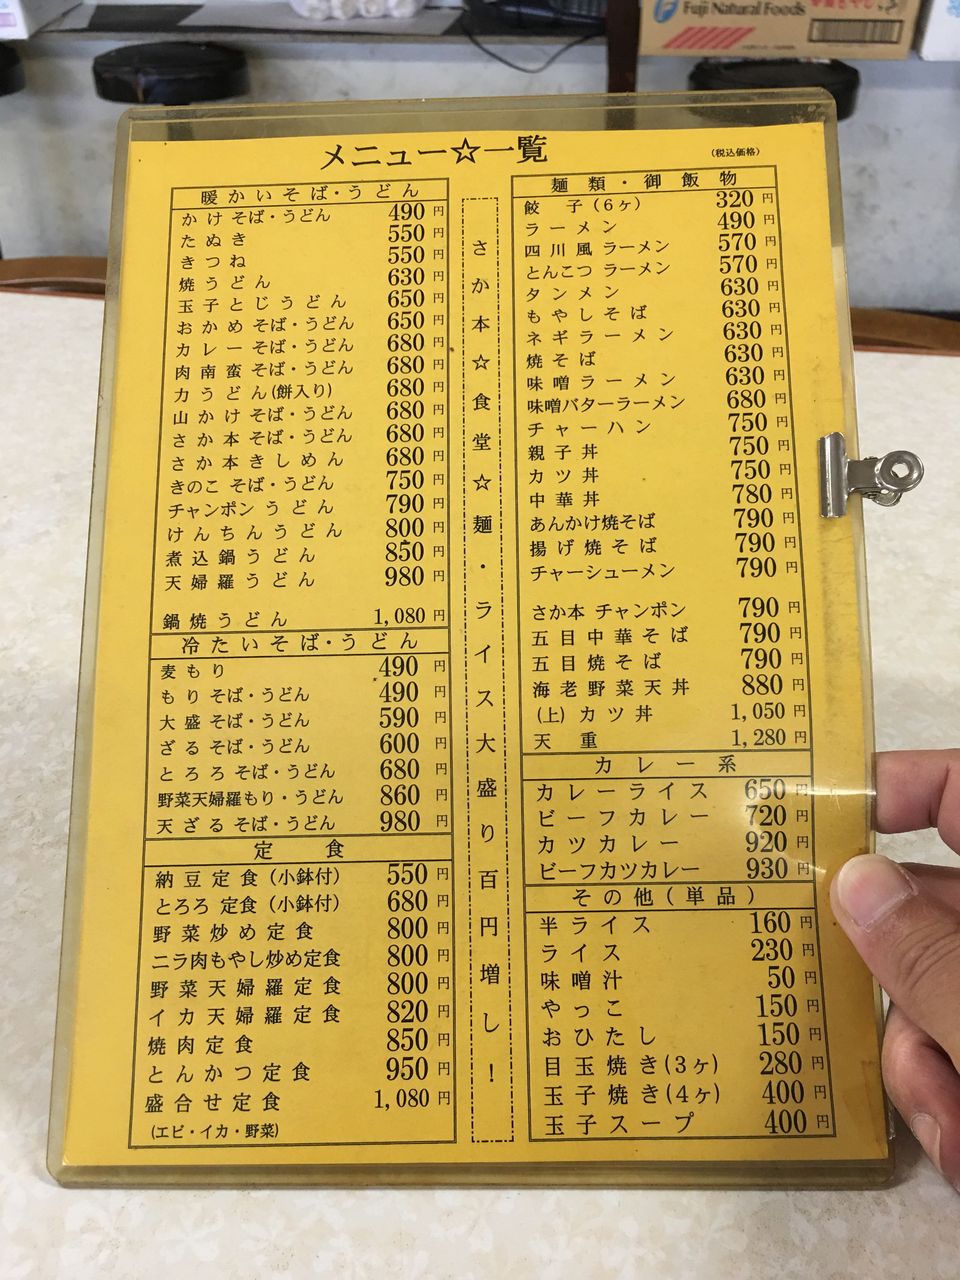 Fuji Natural Foods
メニュー☆一覧
(税込価格)
暖かいそば・うどん
かけそば・うどん 490円
たぬき 550円
きつね 550円
焼うどん 630円
玉子とじうどん 650円
おかめそば・うどん 650円
カレーそば・うどん 680円
肉南蛮そば・うどん 680円
力うどん(餅入り) 680円
山かけそば・うどん 680円
さか本そば・うどん 680円
さか本きしめん 680円
きのこそば・うどん 750円
チャンポンうどん 790円
けんちんうどん 800円
煮込鍋うどん 850円
天婦羅うどん 980円
鍋焼うどん 1,080円
冷たいそば・うどん
麦もり 490円
もりそば・うどん 490円
大盛そば・うどん 590円
ざるそば・うどん 600円
とろろそば・うどん 680円
野菜天婦羅もり・うどん 860円
天ざるそば・うどん 980円
定食
納豆定食(小鉢付) 550円
とろろ定食(小鉢付) 680円
野菜炒め定食 800円
ニラ肉もやし炒め定食 800円
野菜天婦羅定食 800円
イカ天婦羅定食 820円
焼肉定食 850円
とんかつ定食 950円
盛合せ定食 1,080円
(エビ・イカ・野菜)
さか本☆食堂☆麺・ライス大盛り百円増し!
麺類・御飯物
餃子(6ヶ) 320円
ラーメン 490円
四川風ラーメン 570円
とんこつラーメン 570円
タンメン 630円
もやしそば 630円
ネギラーメン 630円
焼そば 630円
味噌ラーメン 630円
味噌バターラーメン 680円
チャーハン 750円
親子丼 750円
カツ丼 750円
中華丼 780円
あんかけ焼そば 790円
揚げ焼そば 790円
チャーシューメン 790円
さか本チャンポン 790円
五目中華そば 790円
五目焼そば 790円
海老野菜天丼 880円
(上)カツ丼 1,050円
天重 1,280円
カレー系
カレーライス 650円
ビーフカレー 720円
カツカレー 920円
ビーフカツカレー 930円
その他(単品)
半ライス 160円
ライス 230円
味噌汁 50円
やっこ 150円
おひたし 150円
目玉焼き(3ヶ) 280円
玉子焼き(4ヶ) 400円
玉子スープ 400円